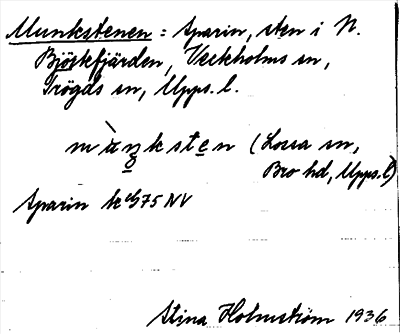 Munkstenen: Aparin, sten i N.
Björkfjärden, Veckholms sn,
Trögds sn, Upps. l.
mùŋksten (Lossa sn,
Bro hd, Upps. l)
Aparin k 75 NV
Stina Holmström 1936